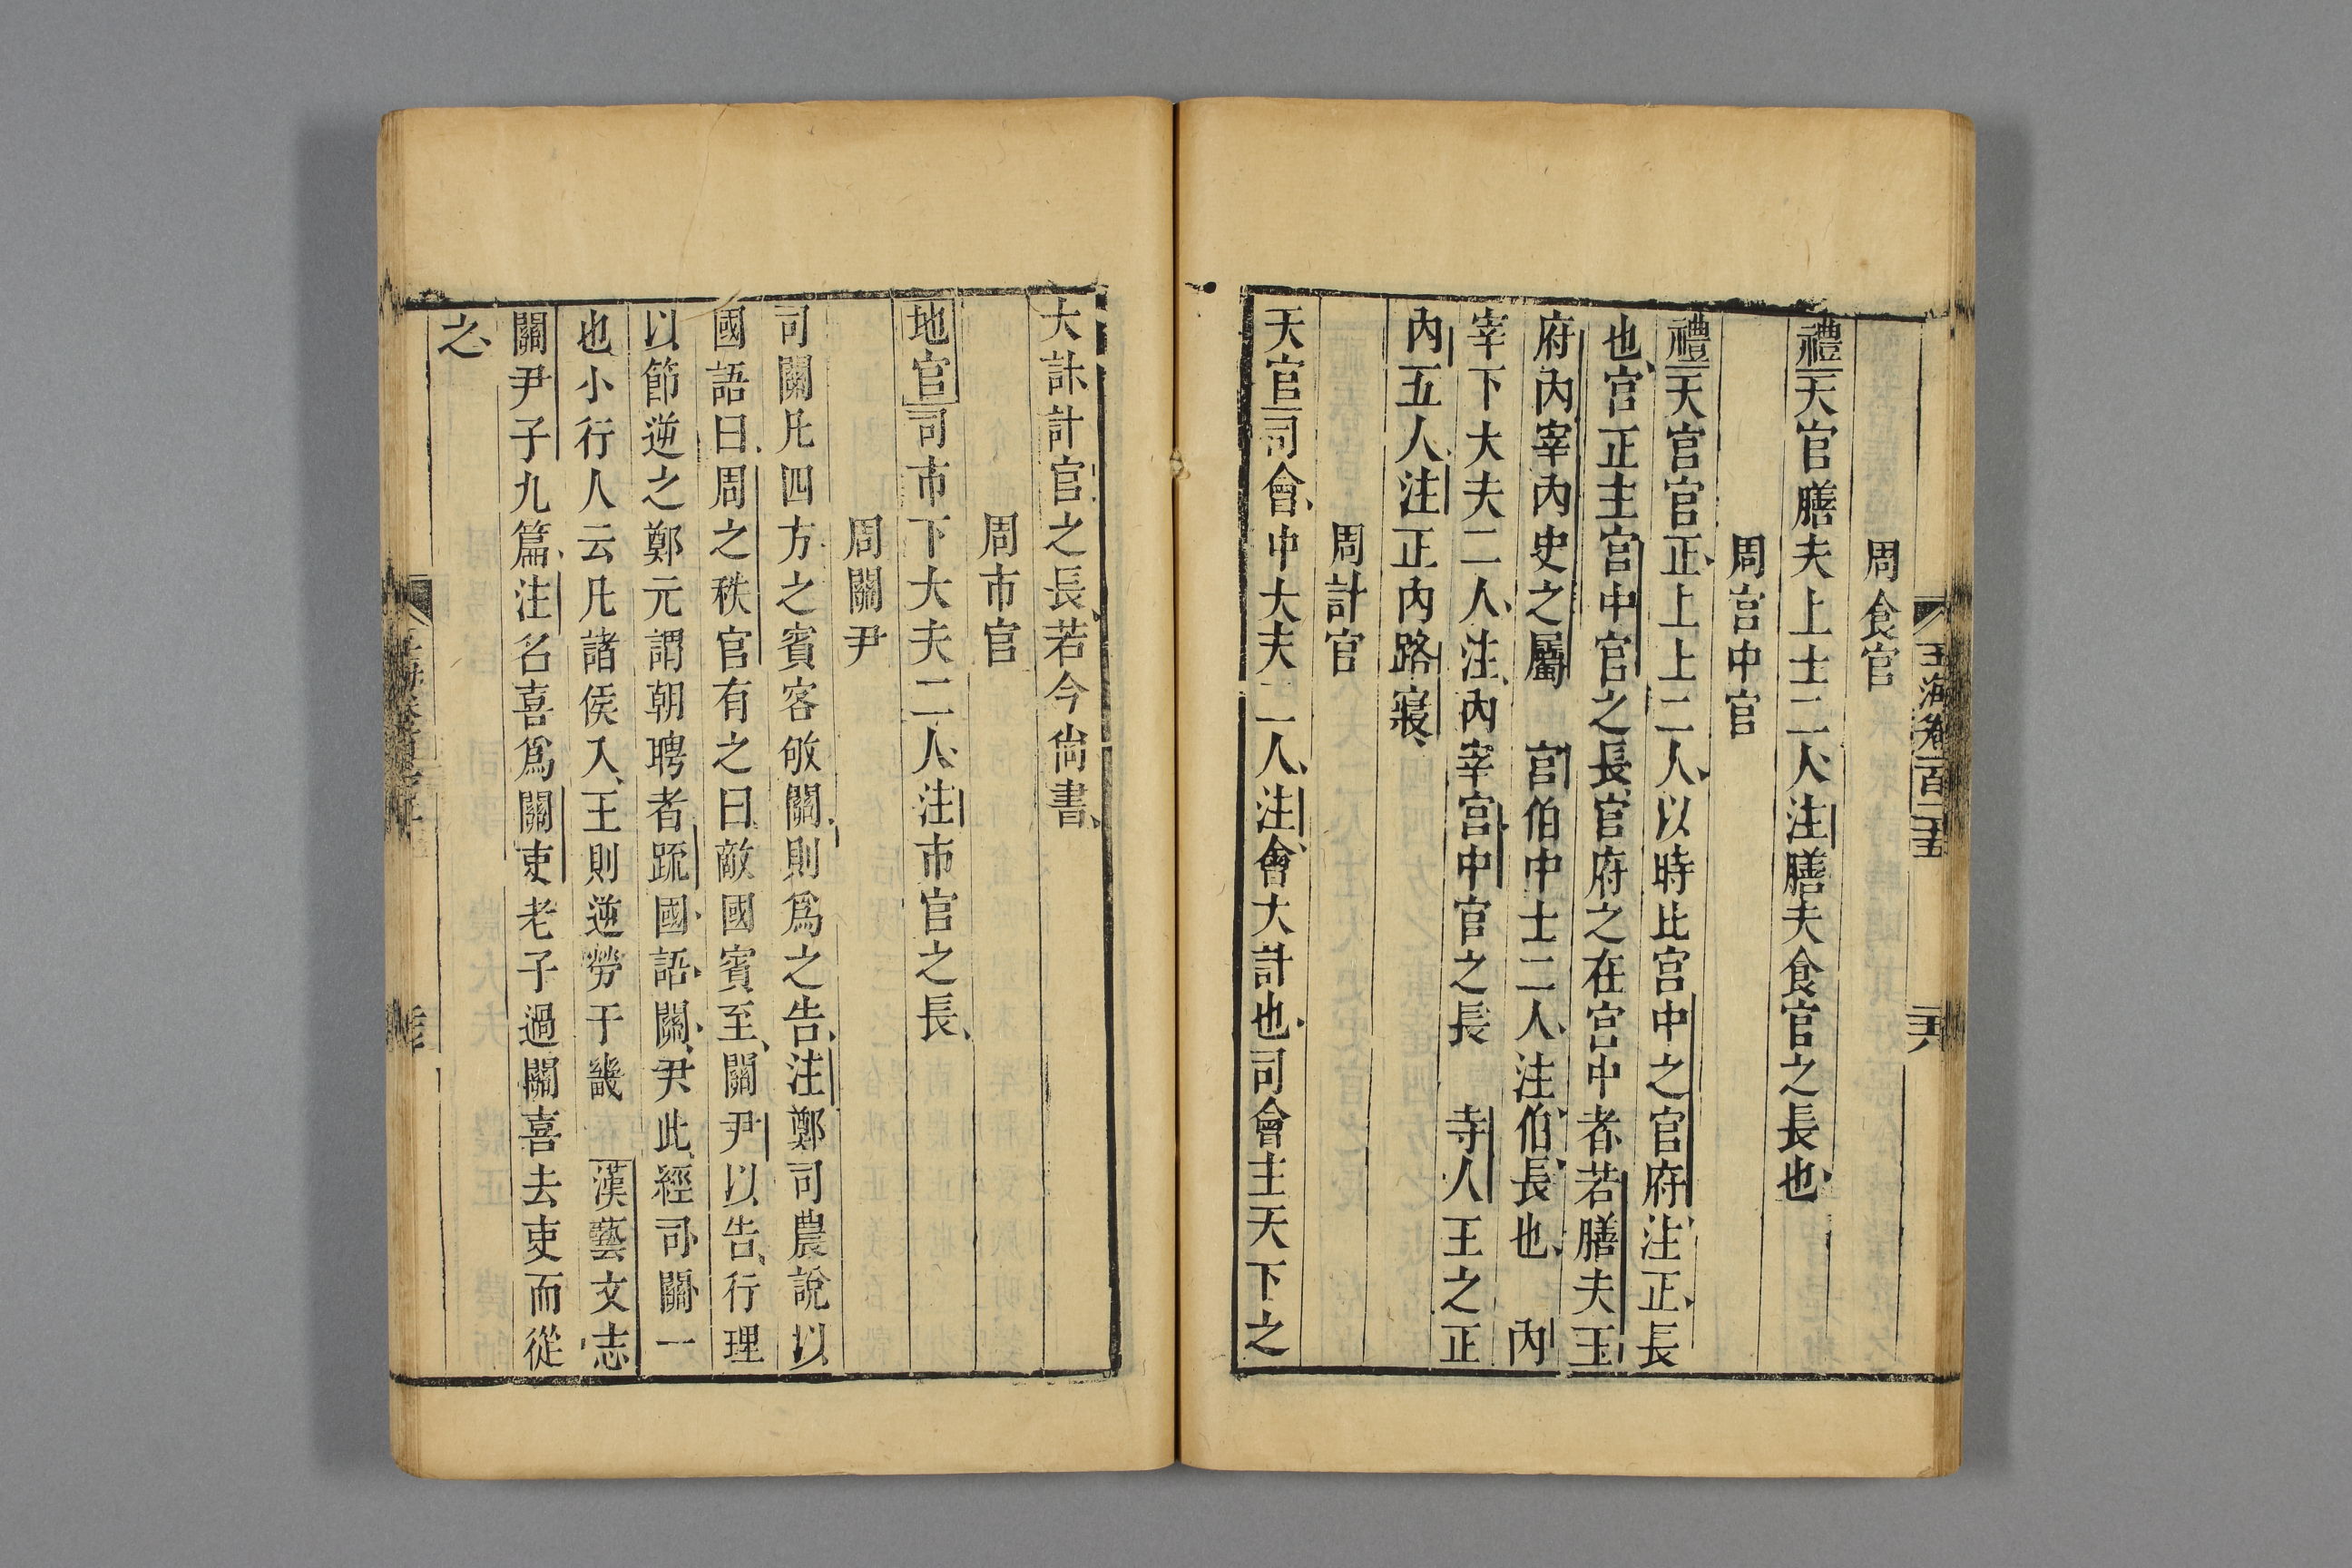 玉海卷百二十五
周食官
禮天官膳夫上士二人注膳夫食官之長也
周宮中官
禮天官官正上上二人以時比宮中之官府注正長
也官正主宮中官之長官府之在宮中者若膳夫玉
府內宰內史之屬 官伯中士二人注伯長也 內
宰下大夫二人注內宰宮中官之長 寺人王之正
內五人注正內路寢
周計官
天官司會中大夫二人注會大計也司會主天下之
大計計官之長若今尚書
周市官
地官司市下大夫二人注市官之長
周關尹
司關凡四方之賓客敂關則爲之告注鄭司農說以
國語曰周之秩官有之曰敵國賓至關尹以告行理
以節逆之鄭元謂朝聘者疏國語關尹此經司關一
也小行人云凡諸侯入王則逆勞于畿 漢藝文志
關尹子九篇注名喜爲關吏老子過關喜去吏而從
之